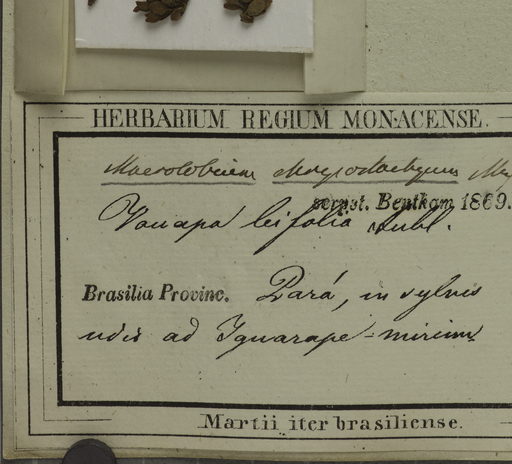 HERBARIUM REGIUM MONACENSE.
Macrolobium
scrpst. Bentham 1869.
Vouapa bifolia Aubl.
Brasilia Provinc. Pará, in sylvis
udis ad Iguarape-mirim
Martii iter brasiliense.